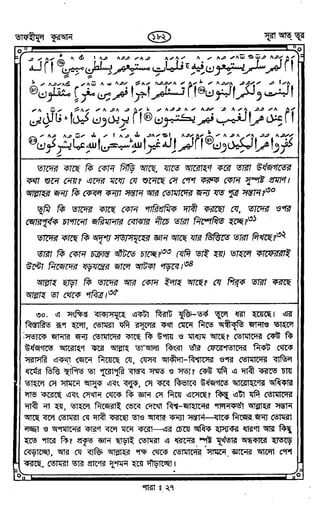 তাফহীমুল কুরআন
১৮২
সূরা আত্ তূর
أَمْ لَهُمْ سُلَّمٌ يَسْتَمِعُونَ فِيهِ ۚ فَلْيَأْتِ مُسْتَمِعُهُمْ بِسُلْطٰنٍ مُّبِينٍ ۝ أَمْ لَهُ
الْبَنٰتُ وَلَكُمُ الْبَنُونَ ۝ أَمْ تَسْئَلُهُمْ أَجْرًا فَهُمْ مِّنْ مَّغْرَمٍ مُّثْقَلُونَ ۝
أَمْ عِنْدَهُمُ الْغَيْبُ فَهُمْ يَكْتُبُونَ ۝ أَمْ يُرِيدُونَ كَيْدًا ۚ فَالَّذِينَ
كَفَرُوا هُمُ الْمَكِيدُونَ ۝ أَمْ لَهُمْ إِلٰهٌ غَيْرُ اللهِ ۚ سُبْحٰنَ اللهِ عَمَّا يُشْرِكُونَ ۝
তাদের কাছে কি কোন সিঁড়ি আছে, যাতে আরোহণ করে তারা উর্ধজগতের
কথা শুনে নেয়? এদের মধ্যে যে শুনেছে সে পেশ করুক কোন সুস্পষ্ট প্রমাণ।
আল্লাহর জন্য কি কেবল কন্যা সন্তান আর তোমাদের জন্য যত পুত্র সন্তান।৩০
তুমি কি তাদের কাছে কোন পারিশ্রমিক দাবী করছো যে, তাদের ওপর
জোরপূর্বক চাপানো জরিমানার বোঝার নীচে তারা নিষ্পেষিত হচ্ছে?৩১
তাদের কাছে কি অদৃশ্য সত্যসমূহের জ্ঞান আছে যার ভিত্তিতে তারা লিখছে?৩২
তারা কি কোন চক্রান্ত আঁটতে চাচ্ছে?৩৩ (যদি তাই হয়) তাহলে কাফেররাই
উল্টো নিজেদের ষড়যন্ত্রের জালে আটকা পড়বে।৩৪
আল্লাহ ছাড়া কি তাদের আর কোন ইলাহ আছে? যে শির্ক তারা করছে
আল্লাহ তা থেকে পবিত্র।৩৫
৩০. এ সংক্ষিপ্ত বাক্যসমূহে একটা বিরাট যুক্তি-তর্ক তুলে ধরা হয়েছে। এর
বিস্তারিত রূপ হলো, তোমরা যদি রসূলের কথা মেনে নিতে অস্বীকৃতি জানাও তাহলে
সত্যকে জানার জন্য তোমাদের কাছে কি উপায় ও মাধ্যম আছে? তোমাদের কেউ কি
উর্ধজগতে আরোহণ করে আল্লাহ তা'আলা কিংবা তাঁর ফেরেশতাদের নিকট থেকে
সরাসরি একথা জেনে নিয়েছে যে, যেসব আকীদা-বিশ্বাসের ওপর তোমাদের বাতিল
ধর্মের ভিত্তি স্থাপিত তা পুরোপুরি বাস্তব সম্মত ও সত্য? কেউ যদি এ দাবী করতে চায়
তাহলে সে সামনে আসুক এবং বলুক, সে কবে কিভাবে উর্ধজগতে আরোহণের অধিকার
লাভ করেছে এবং সেখান থেকে কি জ্ঞান সে নিয়ে এসেছে। কিন্তু এটা যদি তোমাদের
দাবী না হয়, তাহলে নিজেরাই ভেবে দেখো বিশ্ব-জাহানের পালনকর্তা আল্লাহর সন্তান
আছে বলে তোমরা যে দাবী করছো তাও আবার কন্যা সন্তান—যাকে নিজের জন্য তোমরা
লজ্জা ও অপমানের কারণ বলে মনে করো—এর চেয়ে অধিক হাস্যকর ধারণা আর কিছু
হতে পারে কি। প্রকৃত জ্ঞান ছাড়াই তোমরা এ ধরনের স্পষ্ট মূর্খতার অন্ধকারে হাতড়ে
বেড়াচ্ছো, আর যে ব্যক্তি আল্লাহর পক্ষ থেকে তোমাদের সামনে জ্ঞানের আলো পেশ
করছে, তোমরা তার প্রাণের দুশমন হয়ে দাঁড়াচ্ছো।
পারা : ২৭